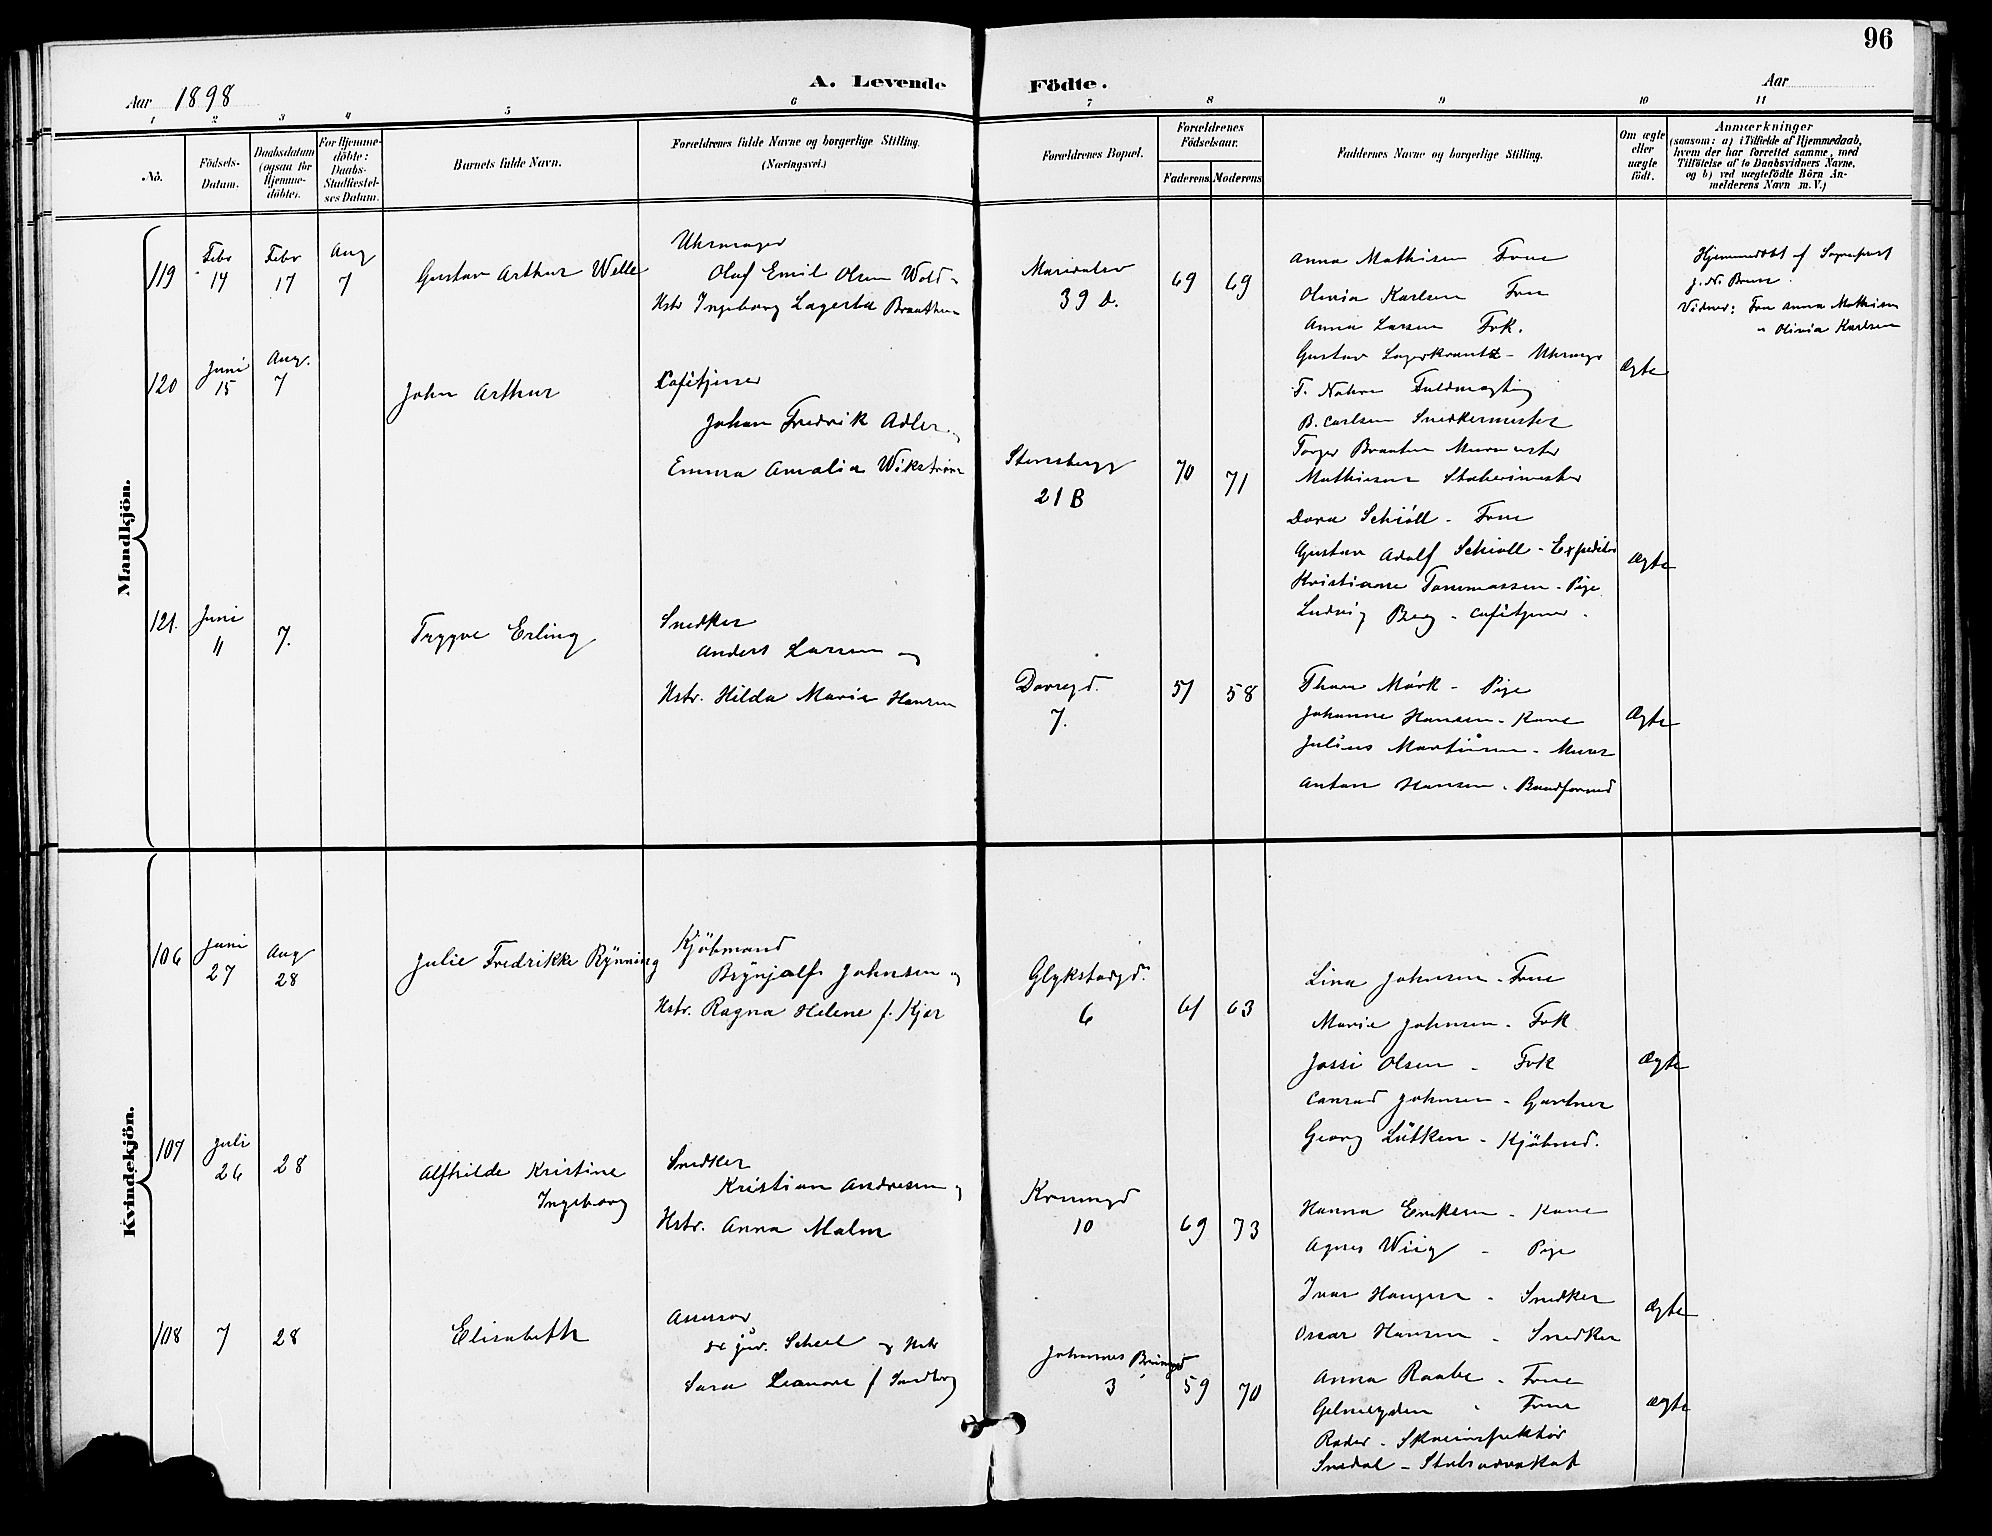 96
Aar 1898
A. Levende Födte.
Aar
1 2 3 4 5 6 7 8 9 10 11
No.
Födsels-
Datum.
Daabsdatum
(ogsaa for
Hjemme-
döbte).
For Hjemme-
döbte:
Daabs-
Stadfæstel-
ses Datum.
Barnets fulde Navn.
Forældrenes fulde Navne og borgerlige Stilling.
(Næringsvei.)
Forældrenes Bopæl.
Forældrenes
Födselsaar.
Faderens. Moderens.
Faddernes Navne og borgerlige Stilling.
Om ægte
eller
uægte
födt.
Anmærkninger
(saasom: a) i Tilfælde af Hjemmedaab,
hvem der har forrettet samme, med
Tilföielse af to Daabsvidners Navne,
og b) ved uægtefödte Börn An-
melderens Navn m. V.)
Mandkjön.
119
Febr
14
Febr
17
Aug
7
Gustav Arthur Welle
Uhrmager
Olaf Emil Olsen Wold
Hstr Ingeborg Lagerta Braathen
Maridalsv
39 D.
69
69
Anna Mathisen Frue
Olivia Karlsen Frue
Anna Larsen Frk.
Gustav Lagerkrantz - Uhrmager
T. Nohre Fuldmægtig
B. Carlsen Snedkermester
Torger Braaten Murmester
Mathiesen
Ægte
Hjemmedöbt af Sogneprest
J. N. Bruun.
Vidner: Frue Anna Mathisen
" Olivia Karlsen
120
Juni
15
Aug.
7
John Arthur
Cafétjener
Johan Fredrik Adler
Emma Amalia Wikström
Stensbergg
21 B
70
71
Dora Schiöll - Frue
Gustav Adolf Schiöll - Expeditör
Kristiane Tommassen - Pige
Ludvig Berg - Cafétjener.
Ægte
121.
Juni
11
7.
Trygve Erling
Snedker
Anders Larsen og
Hstr. Hilda Marie Hansen
Dovregd.
7.
51
58
Thea Mörk - Pige
Johanne Hansen - Kone
Julius Martinsen - Murer
Anton Hansen - Bundforund
Ægte
Kvindekjön.
106
Juni
27
Aug
28
Julie Fredrikke Rynning
Kjöbmand
Brynjolf Johnsen og
Hstr. Ragna Helene f. Kjær
Glykstadgd.
6
61
63
Lina Johnsen - Frue
Marie Johnsen - Frk
Jossi Olsen - Frk
Conrad Johnsen - Gartner
Georg Lütken - Kjöbmd.
Ægte
107
Juli
26
28
Alfhilde Kristine
Ingeborg
Snedker
Kristian Andresen og
Hstr. Anna Malm
Krumgd
10
69
73
Hanna Eriksen - Kone
Agnes Wiig - Pige
Ivar Haugen - Snedker
Oscar Hansen - Snedker
Ægte
108
7
28
Elisabeth
Assessor
dr jur. Scheel og Hstr
Sara Leonore f Sandberg
Johannes Brungd
3
59
70
Anna Raabe - Frue
Gelmeyden " Frue
Roder - Skoleinspektör
Smedal - Statsadvokat
Ægte